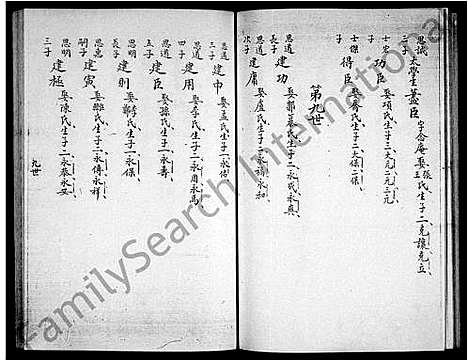 思誠
三子
太學生藎臣 字念庵娶張王氏生子二克讓克立
士宏
次子
功臣 娶項氏生子三大元二元三元
士傑
子
得臣 娶喬氏生子二大保二保
第九世
思道
長子
建功 娶郭氏生子二永成永興
思道
次子
建庸 娶盧氏生子二永禎永和
思道
三子
建中 娶孟氏生子一永佑
思道
四子
建用 娶李氏生子二永周永禹
思道
五子
建臣 娶孫氏生子一永壽
思明
長子
建則 娶鄭氏生子一永保
思惠
嗣子
建寅 娶 氏生子二永傳永祥
思明
三子
建極 娶陳氏生子二永泰永安
九世
FamilySearch International